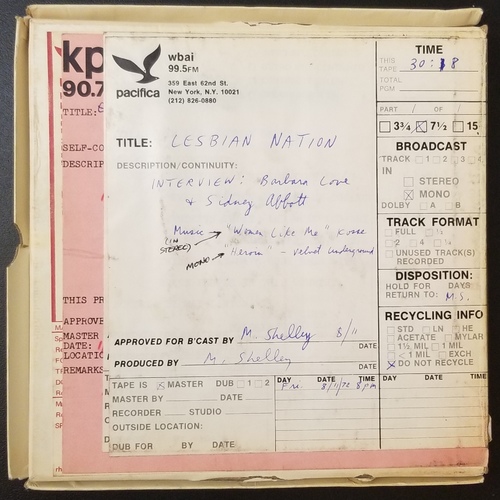 kp
90.7
TITLE:
SELF-CO
DESCRIP
THIS PR
APPROVE
MASTER
DATE:
LOCATIO
REMARKS
pacifica
wbai
99.5FM
359 East 62nd St.
New York, N.Y. 10021
(212) 826-0880
TITLE: LESBIAN NATION
DESCRIPTION/CONTINUITY:
INTERVIEW: Barbara Love
& Sidney Abbott
Music → "Women Like Me" Kosse
(IN STEREO)
MONO → "Heroin" - Velvet Underground
APPROVED FOR B'CAST BY M. Shelley 8/11
DATE
PRODUCED BY M. Shelley
DATE
TAPE IS MASTER DUB 1 2
MASTER BY DATE
RECORDER STUDIO
OUTSIDE LOCATION:
DUB FOR BY DATE
DAY DATE TIME
Fri. 8/11/72 8pm
TIME
THIS TAPE 30:18
TOTAL PGM
PART / OF /
3¾ 7½ 15
BROADCAST
TRACK 1 2 3 4
IN
STEREO
MONO
DOLBY A B
TRACK FORMAT
FULL ½
2 4 ¼
UNUSED TRACK(S)
RECORDED
DISPOSITION:
HOLD FOR DAYS
RETURN TO: M.S.
RECYCLING INFO
STD LN HE
ACETATE MYLAR
1½ MIL 1 MIL
< 1 MIL EXCH
DO NOT RECYCLE
DAY DATE TIME